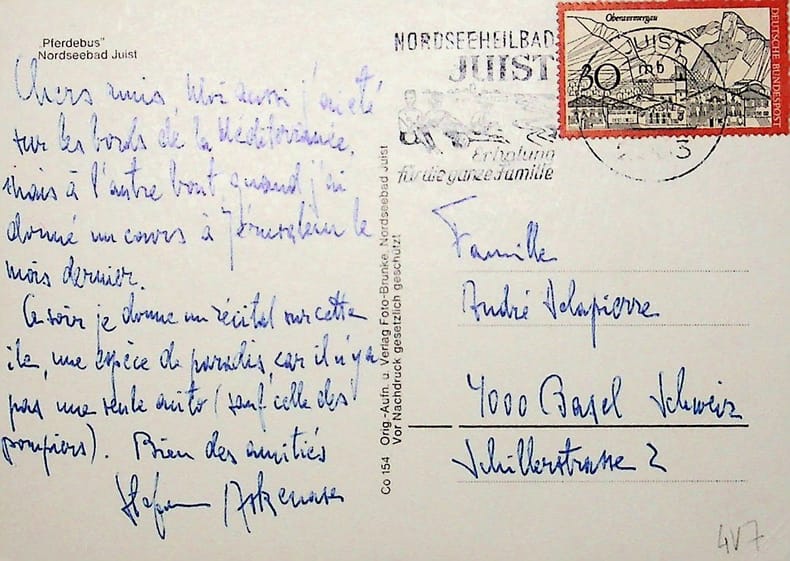 „Pferdebus"
Nordseebad Juist
Chers amis, Moi aussi j'ai été
sur les bords de la Méditerranée,
mais à l'autre bout, quand j'ai
donné un cours à Jérusalem le
mois dernier.
Ce soir je donne un récital sur cette
île, une espèce de paradis, car il n'ya
pas une seule auto (sauf celle des
pompiers). Bien des amitiés
Stefan Askenase
Co 154 Orig.-Aufn. u. Verlag Foto-Brunke, Nordseebad Juist
Vor Nachdruck gesetzlich geschützt
NORDSEEHEILBAD
JUIST
Erholung
für die ganze Familie
Oberammergau
30
DEUTSCHE BUNDESPOST
JUIST
mb
Famille
André Delapierre
4000 Basel Schweiz
Schillerstrasse 2
4V7